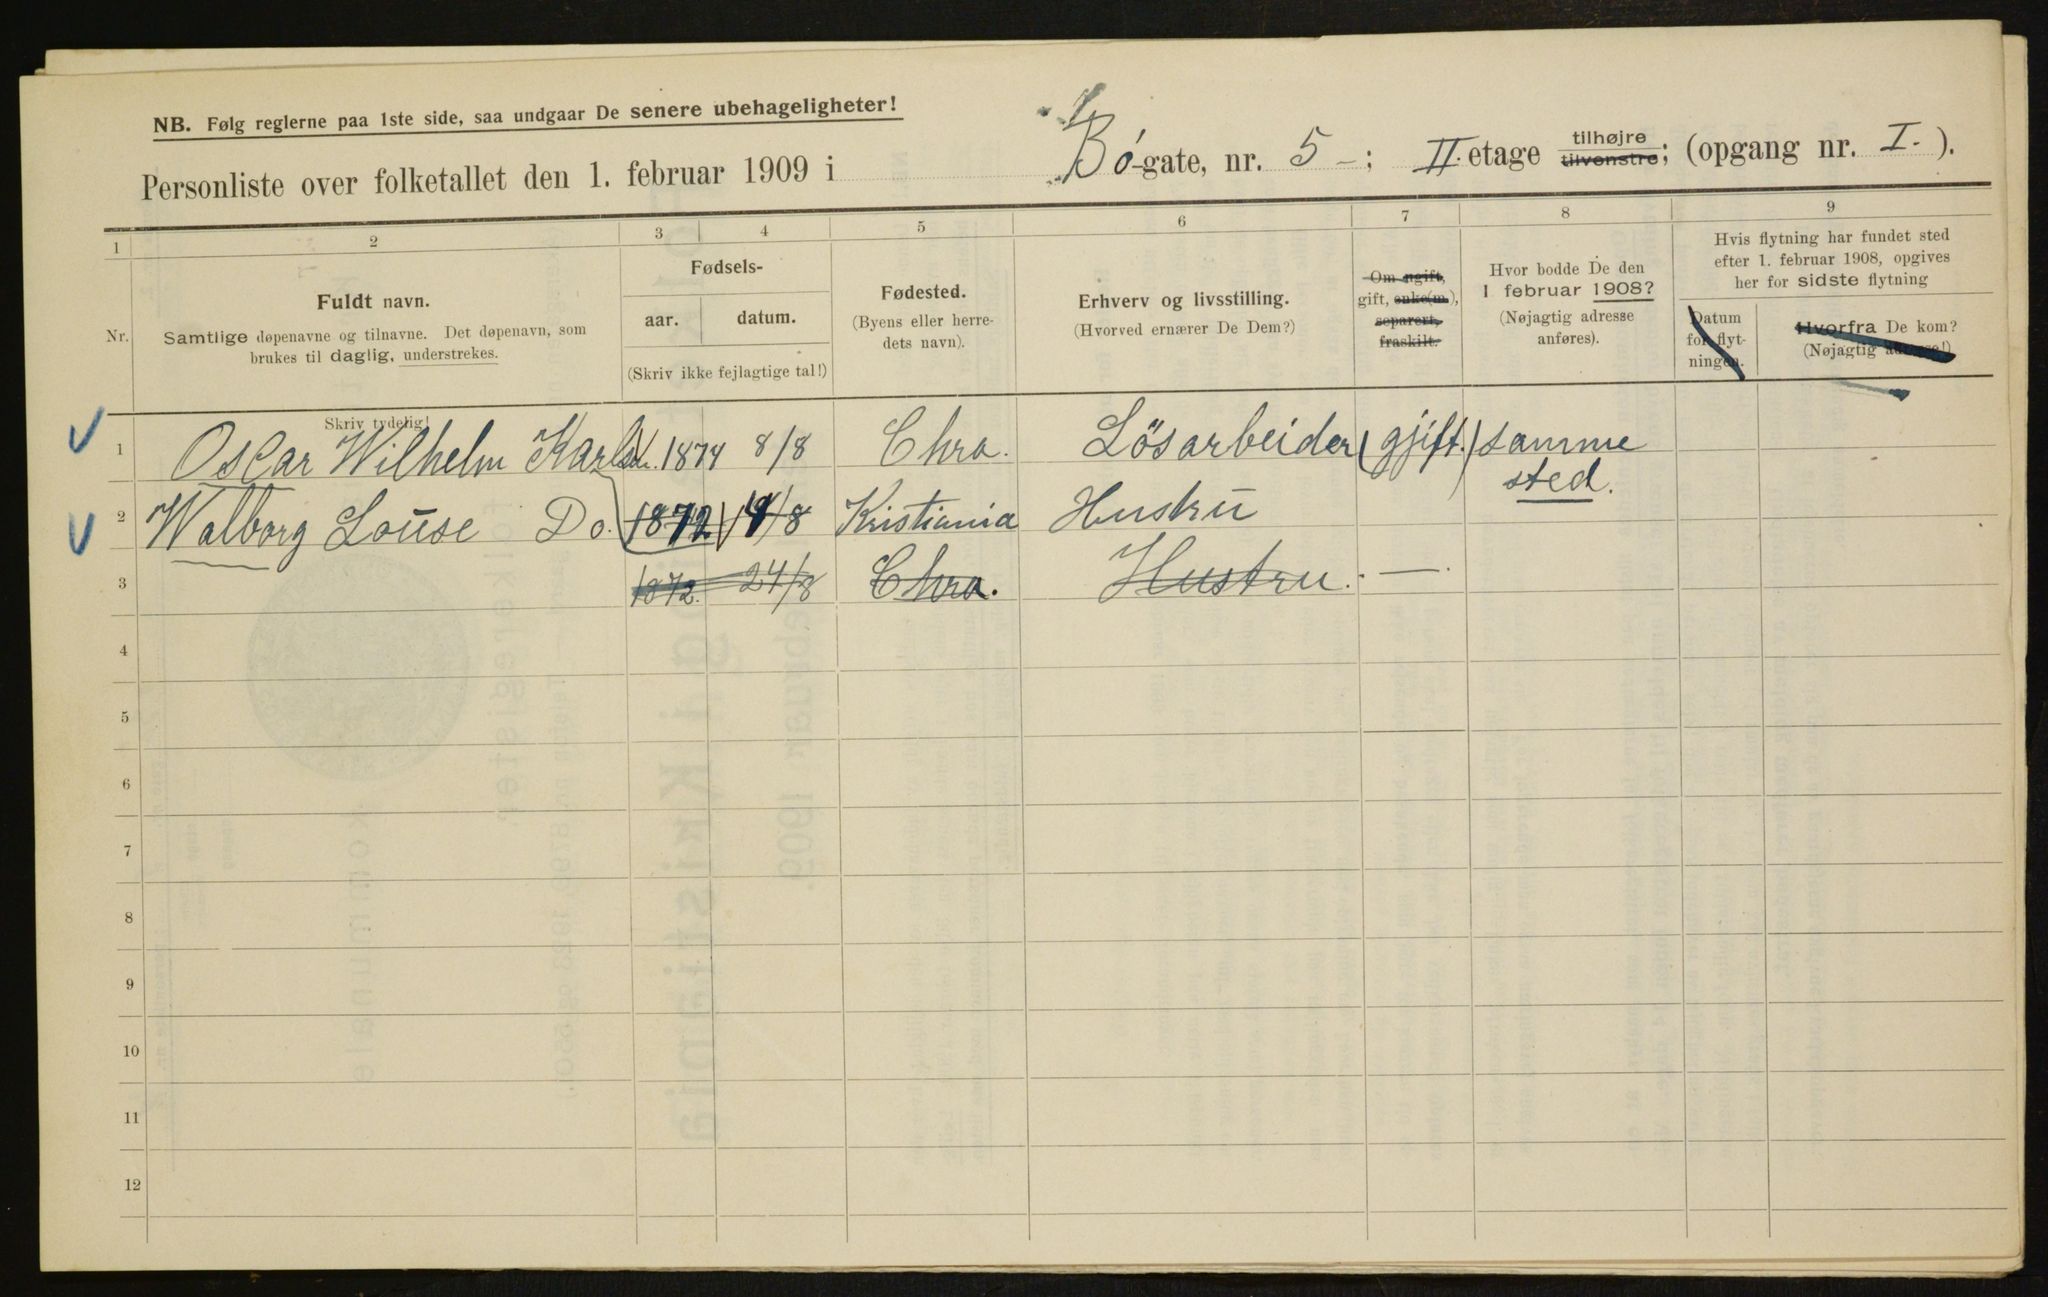 NB. Følg reglerne paa 1ste side, saa undgaar De senere ubehageligheter!
Personliste over folketallet den 1. februar 1909 i Bógate, nr. 5 -; II. etage tilhøjre tilvenstre; (opgang nr. I.).
1 2 3 4 5 6 7 8 9
Nr.
Fuldt navn.
Samtlige døpenavne og tilnavne. Det døpenavn, som
brukes til daglig, understrekes.
Fødsels-
aar. datum.
(Skriv ikke fejlagtige tal!)
Fødested.
(Byens eller herre-
dets navn).
Erhverv og livsstilling.
(Hvorved ernærer De Dem?)
Om ugift,
gift, enke(m.),
separert,
fraskilt.
Hvor bodde De den
1 februar 1908?
(Nøjagtig adresse
anføres).
Hvis flytning har fundet sted
efter 1. februar 1908, opgives
her for sidste flytning
Datum
for flyt-
ningen.
Hvorfra De kom?
(Nøjagtig adresse!)
Skriv tydelig!
1 Oscar Wilhelm 1874 8/8 Chra. Lösarbeider (gjift.) samme
sted.
2 Walborg Louise Do. 1872 /8 Kristiania Hustru
3 1872. 24/8 Chra. Hustru. —
4
5
6
7
8
9
10
11
12